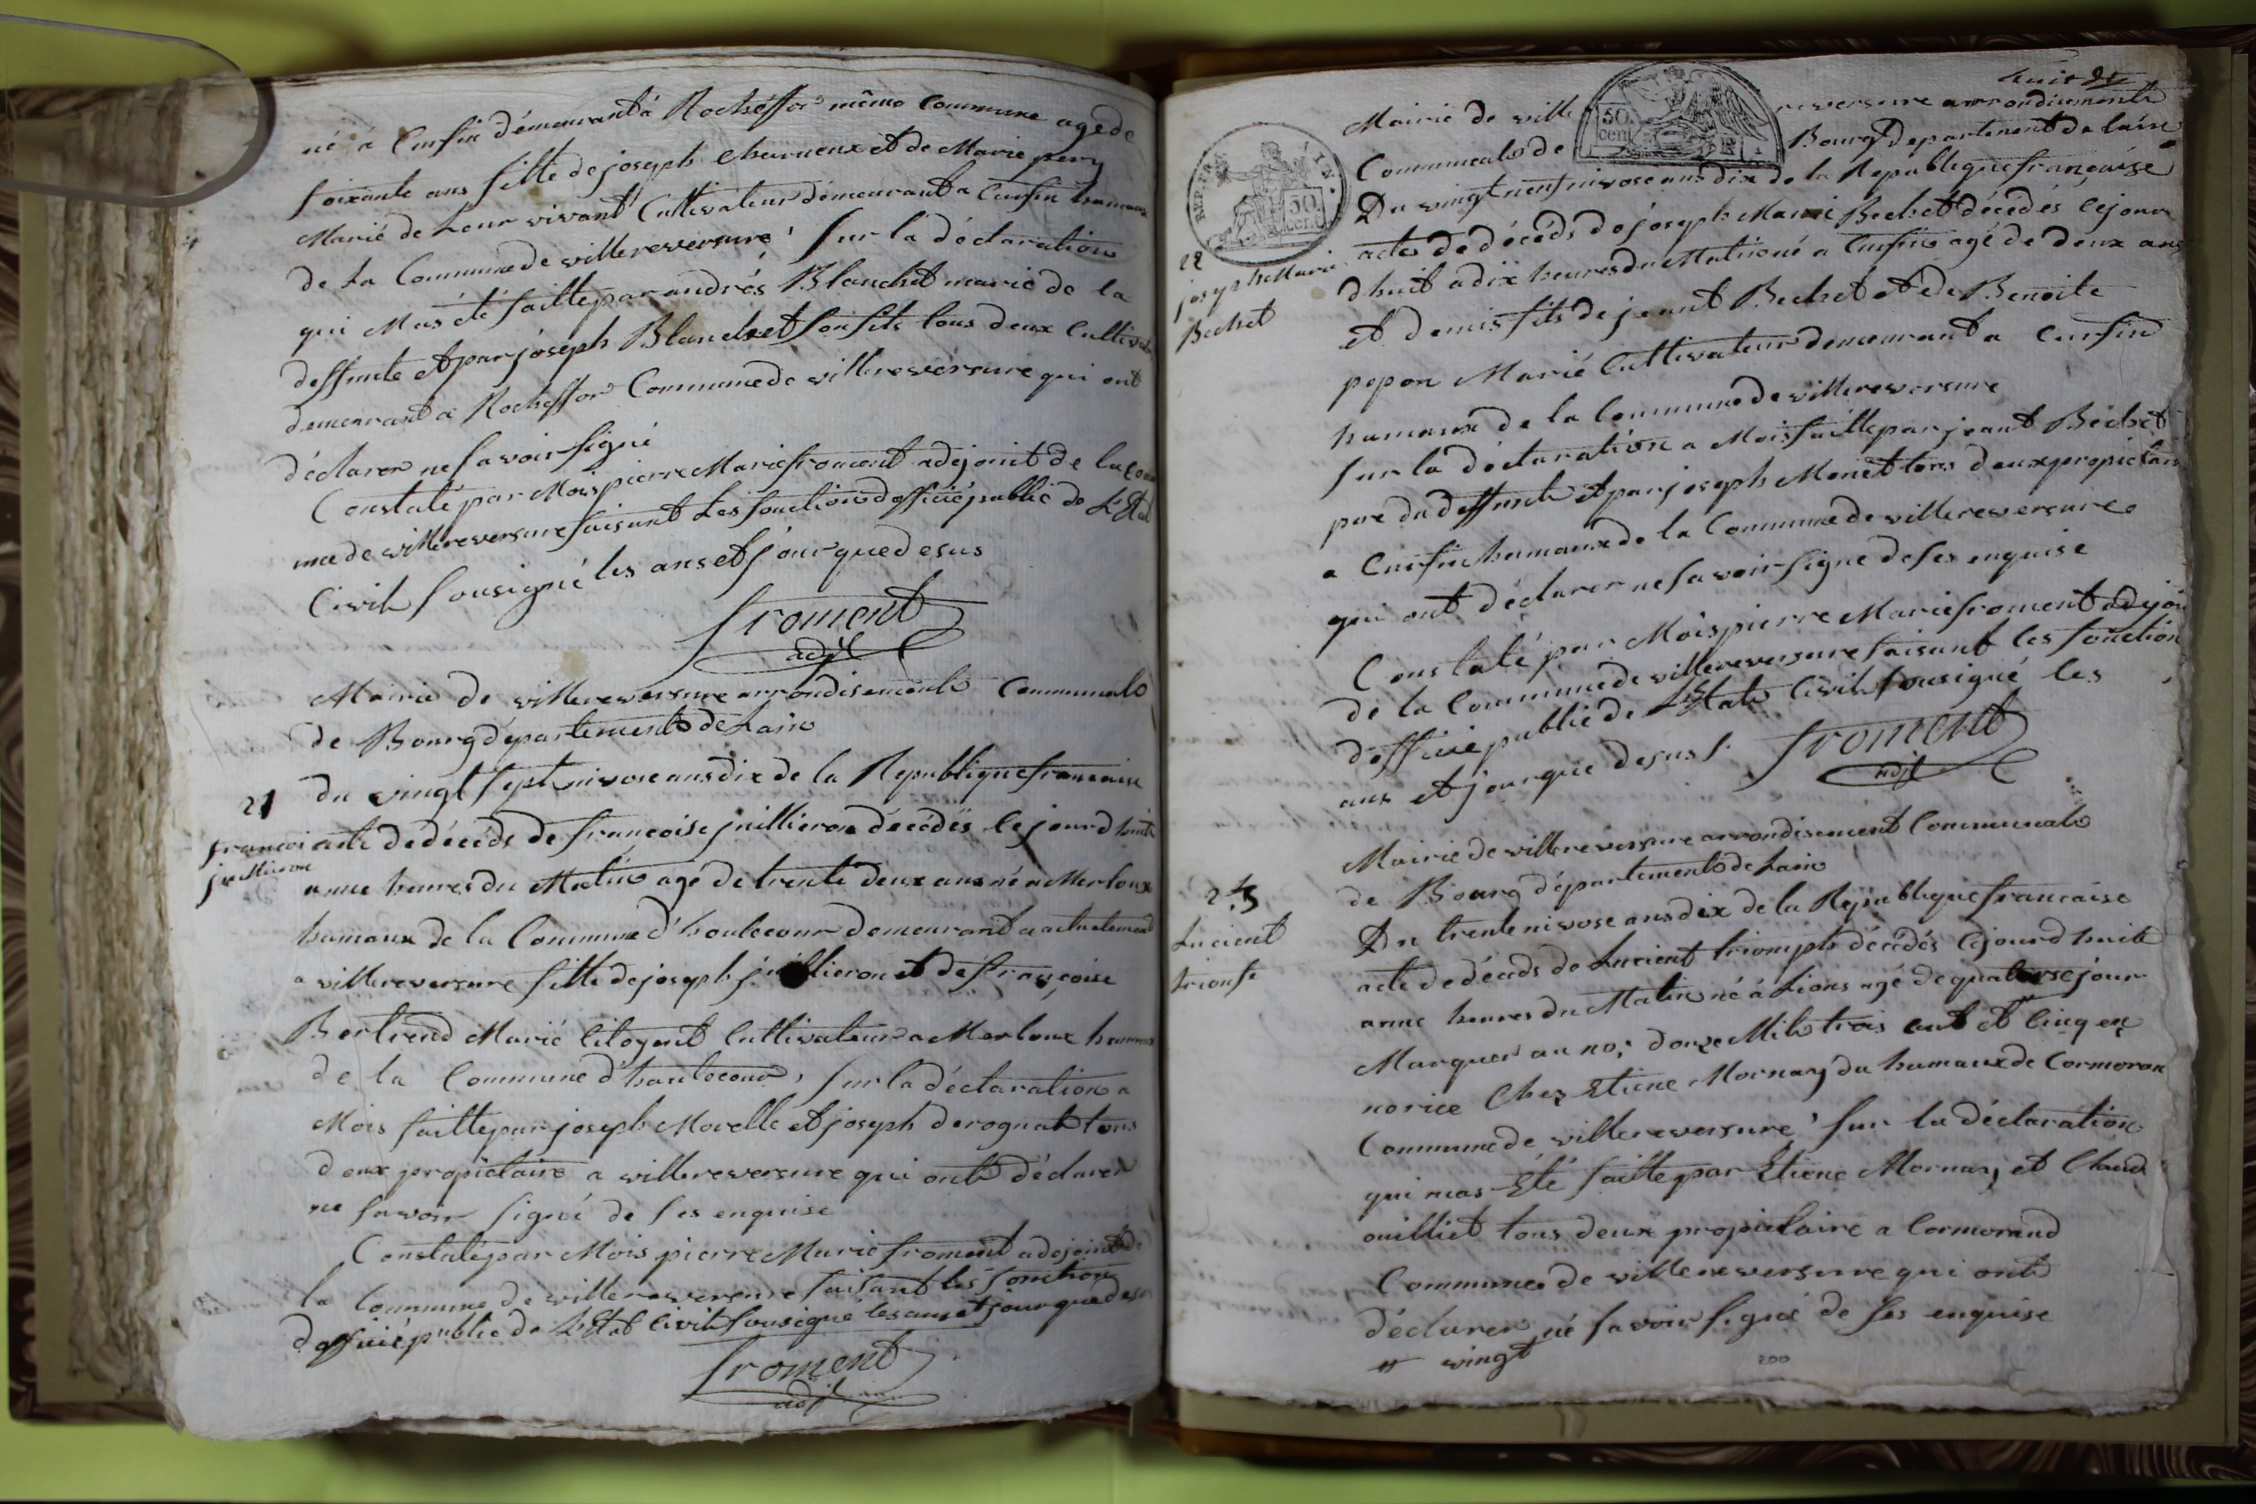 né à Cursin démeurant á Rocheffor même Commune agé de
soixante ans fille de joseph Charneux et de Marie pery
Marié de Leur vivant Cultivateur démeurant a Cursin hamaux
de La Commune de villereversure, sur la déclaration
qui M'as été faitte par andrés Blanchet marié de la
deffunte et par joseph Blanchet son fils tous deux Cultiva
demeurant a Rocheffor Commune de villereversure qui ont
déclarer ne savoir signé
Constaté par Mois pierre Marie froment adejoint de la Com
mue de villereversure faisant Les fonctions d'officié public de L'Etat
Civil sousigné les ans et jour que desus
froment
adjt
Mairie de villereversure arrondisement Communale
de Bourg département de Lain
21 du vingt sept nivose ans dix de la Republique francaise
francoi acte de décéds de françoise juillieron décédés Le jourd huit
juillieron
a une heures du Matin agé de trente deux ans né a Merloux
hamaux de la Commune d'hautecour demeurant a actuelement
a villereversure fille de joseph juillieron et de françoise
Bertrend Marié Citoyent Cultivateur a Merloux hamaux
de la Commune d'hautecour, sur la déclaration a
Mois faitte par joseph Morelle et joseph derognat tous
deux propietaire a villereversure qui ont déclarer
ne savoir signé de ses enquise
Constaté par Mois pierre Marie froment adejoint de
la Commune de villereversure faisant les fonction
d'officié public de L'Etat Civil sousigné les ans et jour que desu
froment
adjt
huit
Mairie de ville reversure arrondisement
Communale de Bourg Departement de lain
REP. FRA.
50 cent
50 cent
Du vingt neuf nivose ans dix de la Republique française
22 acte de décéds de joseph Marie Bechet décédés Cejour
joseph Marie
Bechet
d huit a dix heures du Matin né a Cursin agé de deux ans
et demis fils de jeant Bechet et de Benoite
popon Marié Cultivateur demeurant a Cursin
hamaux de la Commune de villereversure
sur la déclaration a Mois faitte par jeant Bechet
pere du deffunt et par joseph Monet tous deux propietair
a Cursin hamaux de la Commune de villereversure
qui ont déclarer ne savoir signe de ses enquise
Constaté par Mois pierre Marie froment adejoi
de la Commune de villereversure faisant les fonction
d'officié public de L'Etat Civil sousigné les
ans et jour que desus
froment
adjt
Mairie de villereversure arrondisement Communale
de Bourg département de Lain
23 Du trente nivose ans dix de la Republique francaise
Lucient acte de décéds de Lucient triomph décédés Cejourd huit
trionfe
a une heures du Matin né á Lions agé de quatorse jour
Marquer au no; douze Mile trois cent et Cinq en
norice Chez Etiene Mornay du hamaux de Cormoron
Commune de villereversure, sur la déclaration
qui mas Été faitte par Etiene Mornay et Claud
ouilliet tous deux propietaire a Cormorand
Commune de villereversure qui ont
déclarer né savoir signé de ses enquise
# vingt
200